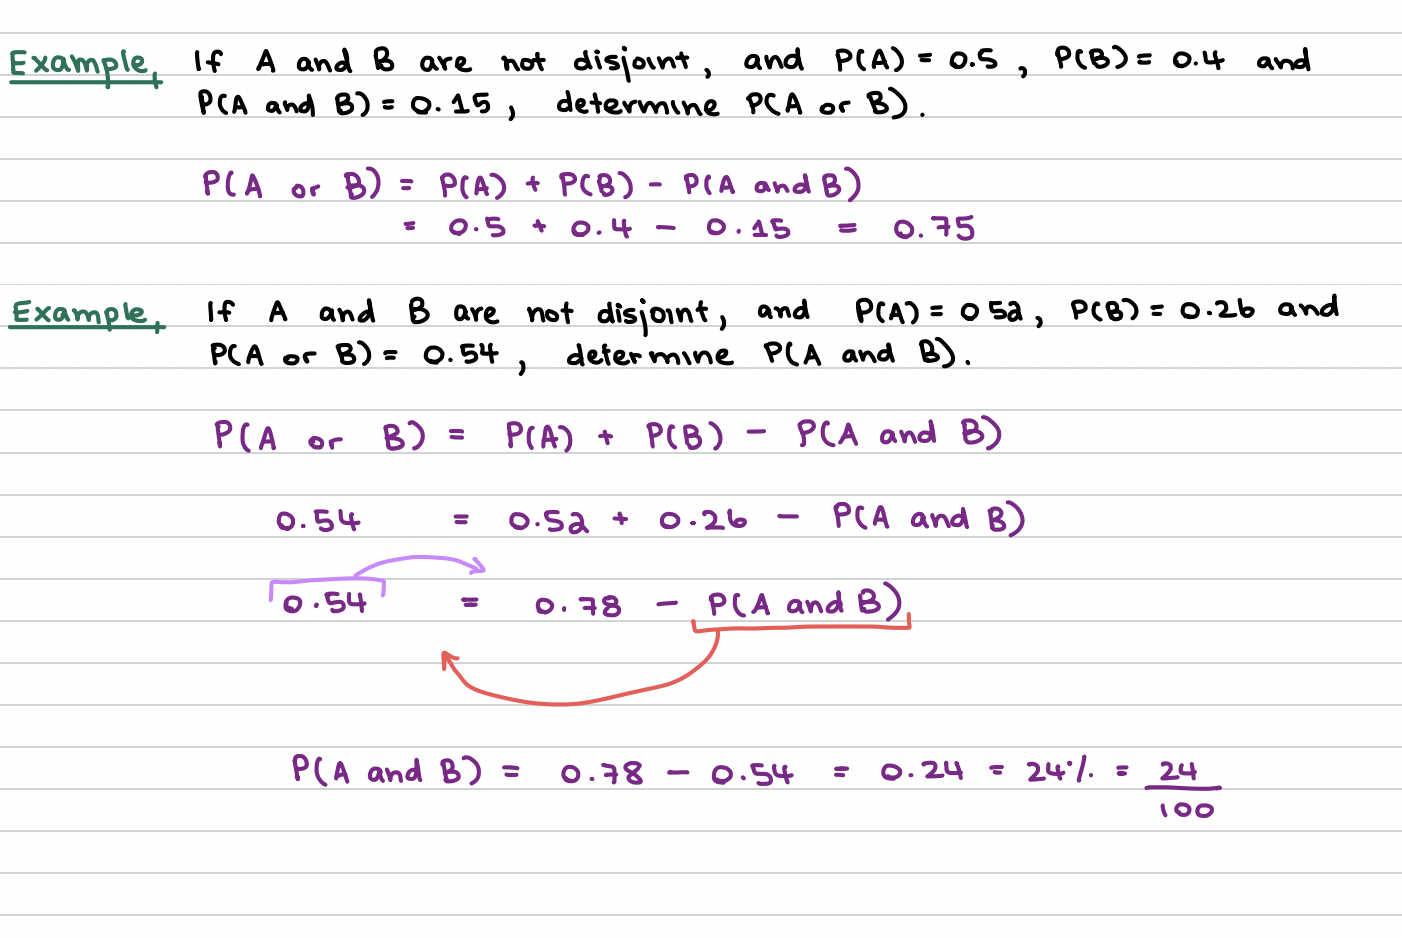 Example, If A and B are not disjoint, and P(A) = 0.5, P(B) = 0.4 and
P(A and B) = 0.15, determine P(A or B).
P(A or B) = P(A) + P(B) - P(A and B)
= 0.5 + 0.4 - 0.15 = 0.75
Example, If A and B are not disjoint, and P(A) = 0 52, P(B) = 0.26 and
P(A or B) = 0.54, determine P(A and B).
P(A or B) = P(A) + P(B) - P(A and B)
0.54 = 0.52 + 0.26 - P(A and B)
0.54 = 0.78 - P(A and B)
P(A and B) = 0.78 - 0.54 = 0.24 = 24% = 24
100